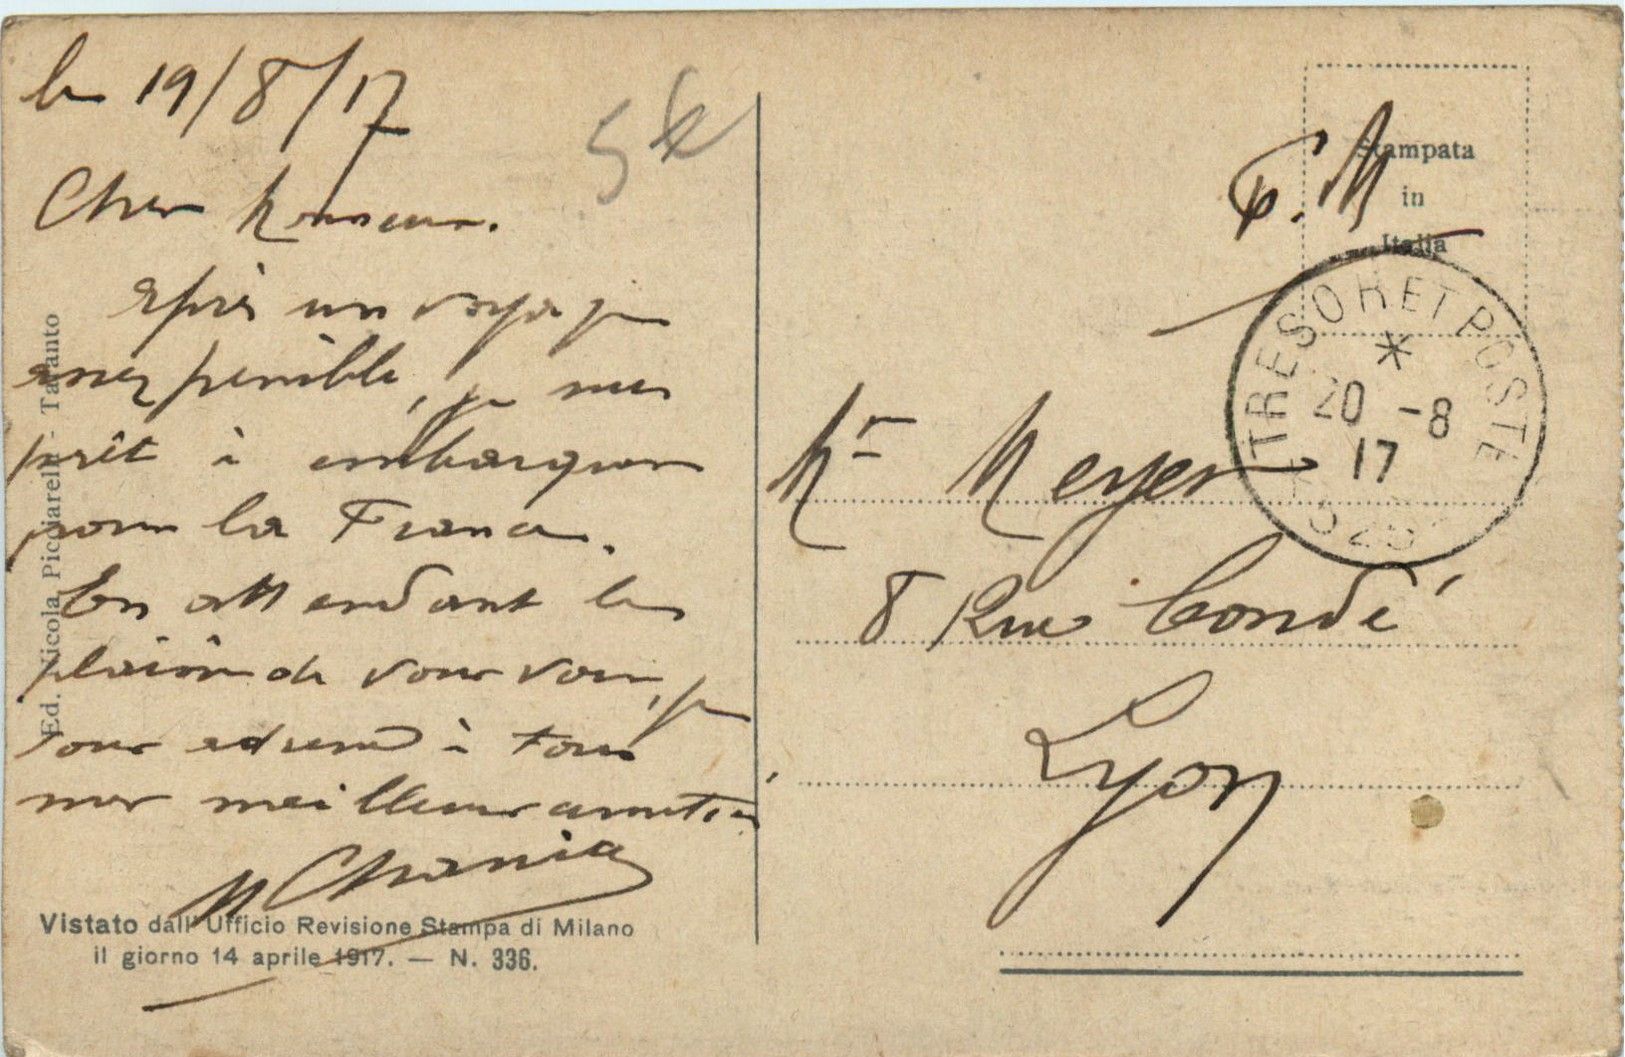 le 19/8/17
Cher Monsieur.
après un voyage
assez pénible, je suis
prêt à embarquer
pour la France.
En attendant le
plaisir de vous voir, je
vous adresse à tous
mes meilleures amitiés
Vistato dall' Ufficio Revisione Stampa di Milano
il giorno 14 aprile 1917. — N. 336.
Ed. Nicola Picciarelli - Taranto
F. M
Stampata
in
Italia
TRESOR ET POSTES
*
20 -8
17
Mr Meyer
8 Rue Condé
Lyon